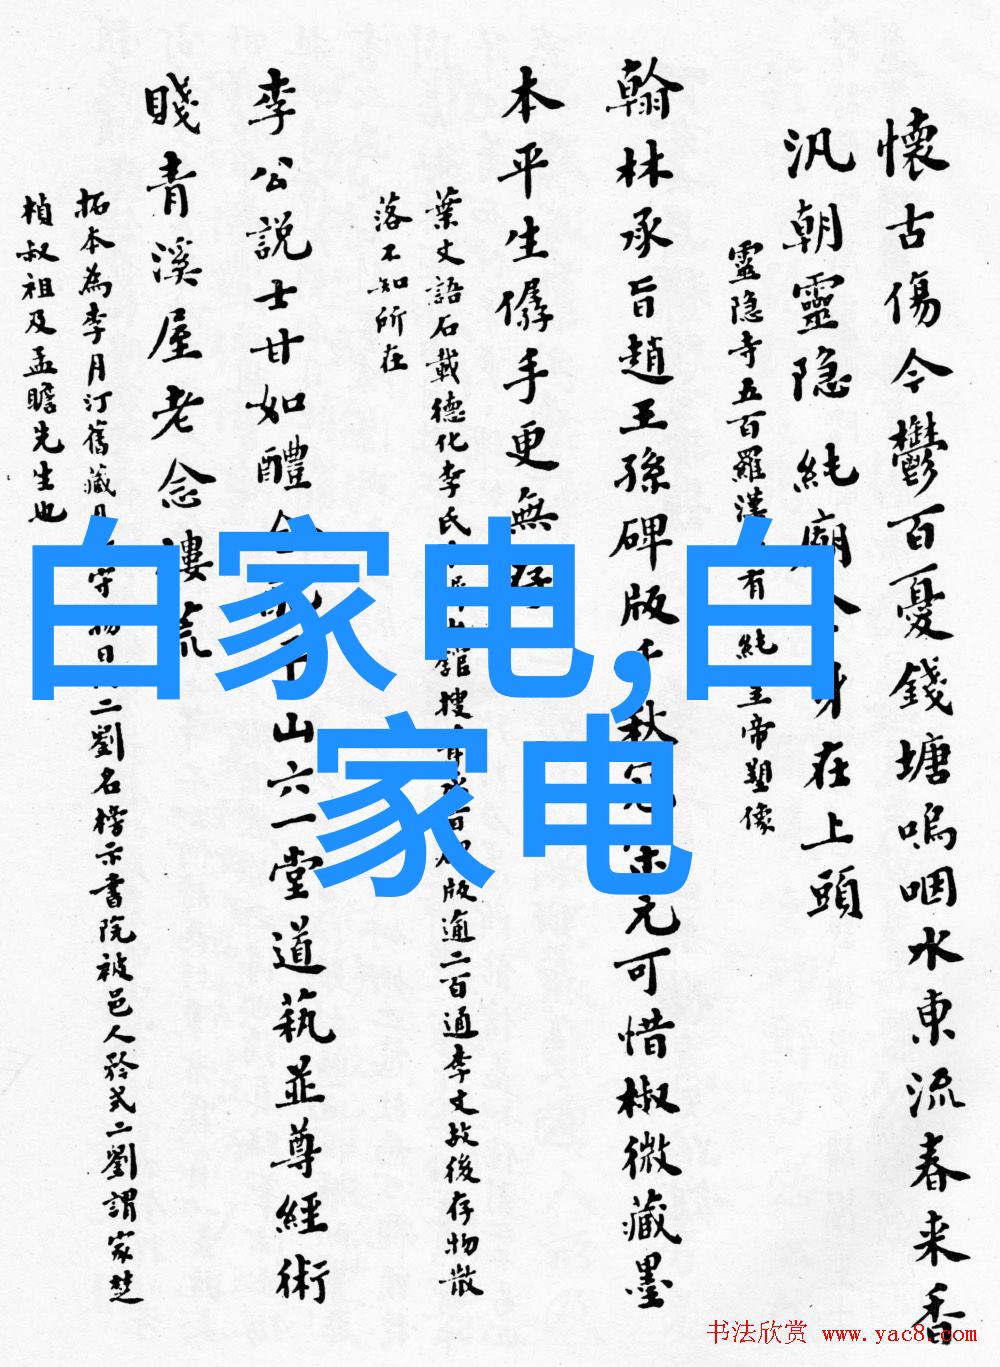 懷古傷今鬱百憂錢塘嗚咽水東流春来香
汎朝靈隐純廟 身在上頭
靈隐寺五百羅漢 有純 皇帝塑像
翰林承旨趙王孫碑版千秋 元可惜椒微藏墨
本平生僞手更無
葉文語石載德化李氏 館搜 版逾二百通李文故後存物散
落不知所在
李公説士甘如醴 山六一堂道蓺並尊經術
賤青溪屋老念 樓荒
拓本為李月汀舊藏 守 日 二劉名榜示書院被邑人 二劉謂家楚
楨叔祖及孟瞻先生也
白家电,白
家电
书法欣赏 www.yac8.com